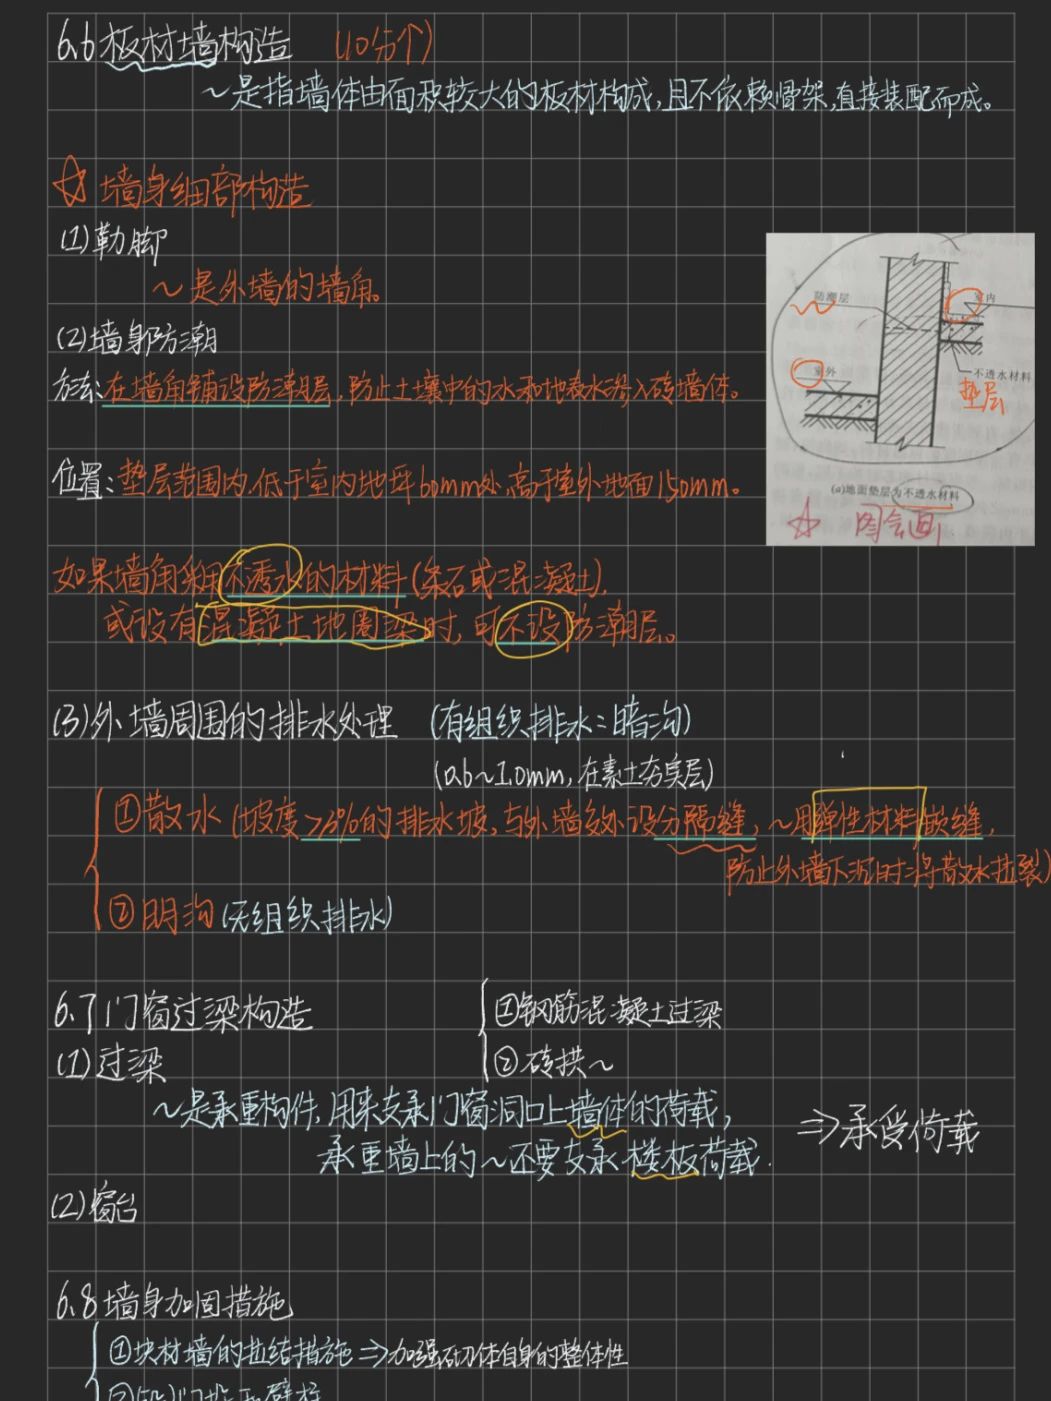 6.6 板材墙构造 (10分个)
~是指墙体由面积较大的板材构成,且不依赖骨架,直接装配而成。
☆ 墙身细部构造
(1)勒脚
~是外墙的墙角。
(2)墙身防潮
方法:在墙角铺设防潮层,防止土壤中的水和地表水渗入砖墙体。
位置:垫层范围内,低于室内地坪60mm处,高于室外地面150mm。
如果墙角采用不透水的材料(条石或混凝土),
或设有混凝土地圈梁时,可不设防潮层。
防潮层
室内
室外
不透水材料
垫层
(a)地面垫层为不透水材料
☆ 图会画
(3)外墙周围的排水处理 (有组织排水:暗沟)
(0.6~1.0mm,在素土夯实层)
①散水(坡度>3%的排水坡,与外墙交外设分隔缝,~用弹性材料嵌缝,
防止外墙下沉时将散水拉裂)
②明沟(无组织排水)
6.7门窗过梁构造
①钢筋混凝土过梁
(1)过梁
②砖拱~
~是承重构件,用来支承门窗洞口上墙体的荷载,
承重墙上的~还要支承楼板荷载.
⇒承受荷载
(2)窗台
6.8墙身加固措施
①块材墙的拉结措施⇒加强砌体自身的整体性